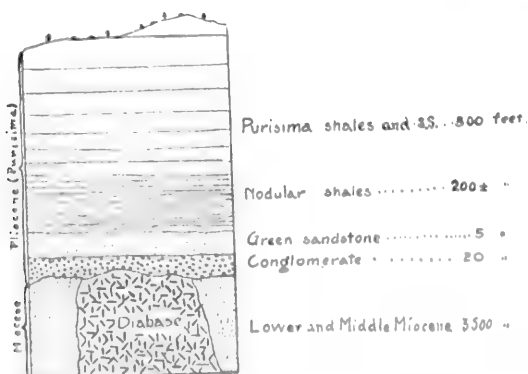 Pliocene (Purisima)
Miocene
Purisima shales and S.S. .. 800 feet.
Nodular shales ........ 200± "
Green sandstone ............ 5 "
Conglomerate . ........ 20 "
Diabase
Lower and Middle Miocene 3500 "